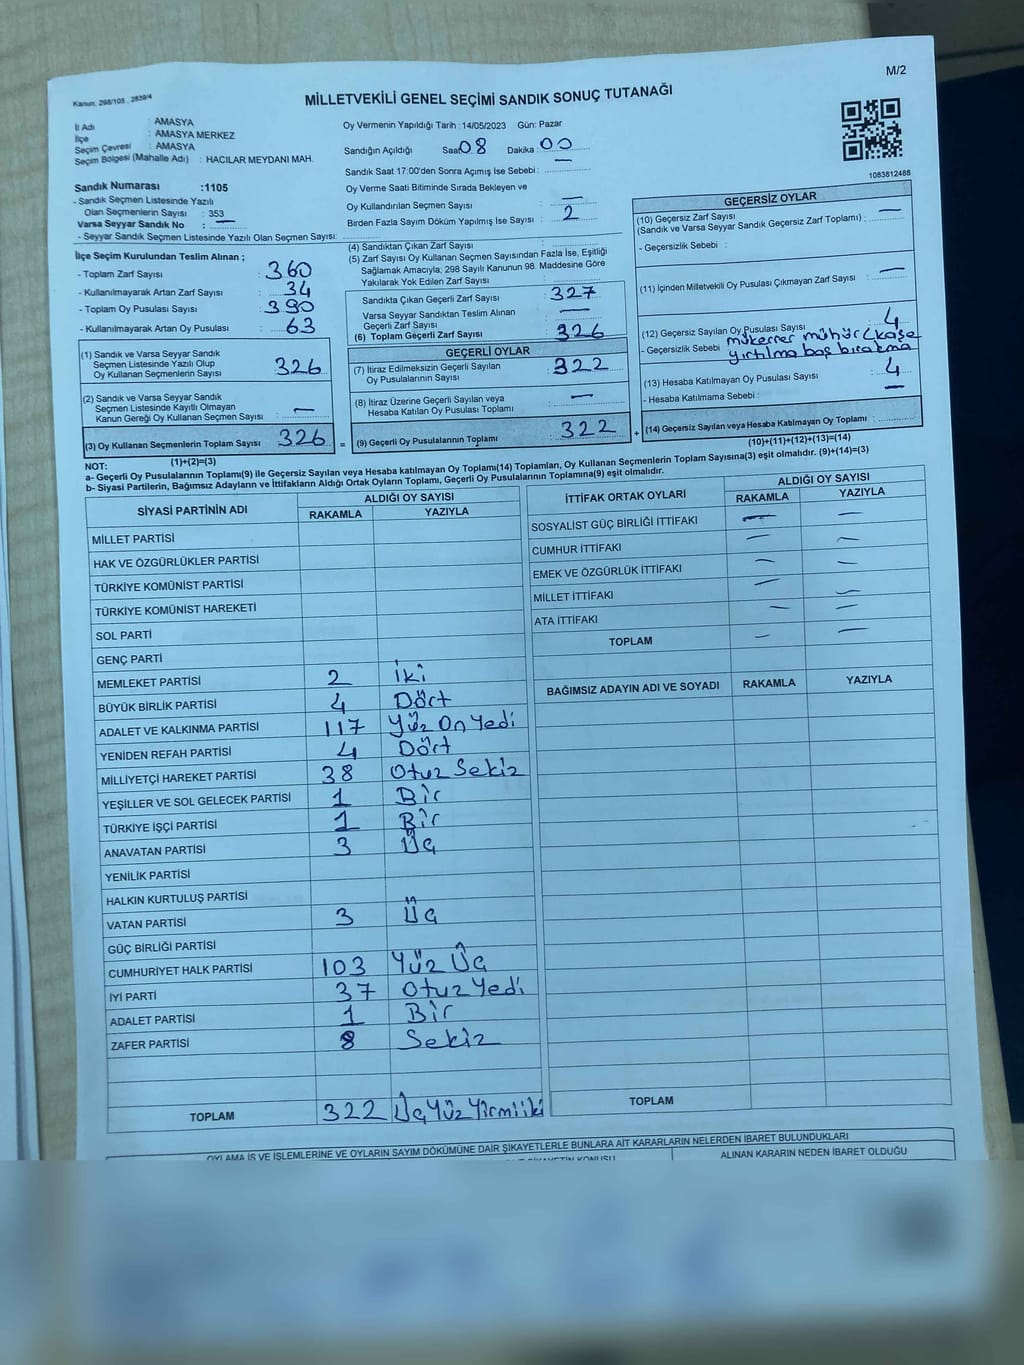 M/2
Kanun: 298/105 , 2839/4
MİLLETVEKİLİ GENEL SEÇİMİ SANDIK SONUÇ TUTANAĞI
İl Adı : AMASYA
İlçe : AMASYA MERKEZ
Seçim Çevresi : AMASYA
Seçim Bölgesi (Mahalle Adı) : HACILAR MEYDANI MAH.
Sandık Numarası :1105
- Sandık Seçmen Listesinde Yazılı
Olan Seçmenlerin Sayısı : 353
Varsa Seyyar Sandık No : —
- Seyyar Sandık Seçmen Listesinde Yazılı Olan Seçmen Sayısı:
İlçe Seçim Kurulundan Teslim Alınan ;
- Toplam Zarf Sayısı : 360
- Kullanılmayarak Artan Zarf Sayısı : 34
- Toplam Oy Pusulası Sayısı : 390
- Kullanılmayarak Artan Oy Pusulası : 63
(1) Sandık ve Varsa Seyyar Sandık
Seçmen Listesinde Yazılı Olup
Oy Kullanan Seçmenlerin Sayısı : 326
(2) Sandık ve Varsa Seyyar Sandık
Seçmen Listesinde Kayıtlı Olmayan
Kanun Gereği Oy Kullanan Seçmen Sayısı : —
(3) Oy Kullanan Seçmenlerin Toplam Sayısı : 326 =
(1)+(2)=(3)
Oy Vermenin Yapıldığı Tarih : 14/05/2023 Gün: Pazar
Sandığın Açıldığı Saat 08 Dakika : 00
Sandık Saat 17:00'den Sonra Açımış İse Sebebi : —
Oy Verme Saati Bitiminde Sırada Bekleyen ve
Oy Kullandırılan Seçmen Sayısı : —
Birden Fazla Sayım Döküm Yapılmış İse Sayısı : 2
(4) Sandıktan Çıkan Zarf Sayısı :
(5) Zarf Sayısı Oy Kullanan Seçmen Sayısından Fazla İse, Eşitliği
Sağlamak Amacıyla; 298 Sayılı Kanunun 98. Maddesine Göre
Yakılarak Yok Edilen Zarf Sayısı :
Sandıkta Çıkan Geçerli Zarf Sayısı : 327
Varsa Seyyar Sandıktan Teslim Alınan
Geçerli Zarf Sayısı : —
(6) Toplam Geçerli Zarf Sayısı : 326
GEÇERLİ OYLAR
(7) İtiraz Edilmeksizin Geçerli Sayılan
Oy Pusulalarının Sayısı : 322
(8) İtiraz Üzerine Geçerli Sayılan veya
Hesaba Katılan Oy Pusulası Toplamı : —
(9) Geçerli Oy Pusulalarının Toplamı : 322 +
1083812488
GEÇERSİZ OYLAR
(10) Geçersiz Zarf Sayısı : —
(Sandık ve Varsa Seyyar Sandık Geçersiz Zarf Toplamı) :
- Geçersizlik Sebebi :
(11) İçinden Milletvekili Oy Pusulası Çıkmayan Zarf Sayısı : —
(12) Geçersiz Sayılan Oy Pusulası Sayısı : 4
- Geçersizlik Sebebi : mükerrer mühür(kaşe
yırtılma boş bırakma
(13) Hesaba Katılmayan Oy Pusulası Sayısı : 4
- Hesaba Katılmama Sebebi : —
(14) Geçersiz Sayılan veya Hesaba Katılmayan Oy Toplamı :
(10)+(11)+(12)+(13)=(14)
NOT:
a- Geçerli Oy Pusulalarının Toplamı(9) ile Geçersiz Sayılan veya Hesaba katılmayan Oy Toplamı(14) Toplamları, Oy Kullanan Seçmenlerin Toplam Sayısına(3) eşit olmalıdır. (9)+(14)=(3)
b- Siyasi Partilerin, Bağımsız Adayların ve İttifakların Aldığı Ortak Oyların Toplamı, Geçerli Oy Pusulalarının Toplamına(9) eşit olmalıdır.
SİYASİ PARTİNİN ADI ALDIĞI OY SAYISI
RAKAMLA YAZIYLA
MİLLET PARTİSİ
HAK VE ÖZGÜRLÜKLER PARTİSİ
TÜRKİYE KOMÜNİST PARTİSİ
TÜRKİYE KOMÜNİST HAREKETİ
SOL PARTİ
GENÇ PARTİ
MEMLEKET PARTİSİ 2 İki
BÜYÜK BİRLİK PARTİSİ 4 Dört
ADALET VE KALKINMA PARTİSİ 117 Yüz On Yedi
YENİDEN REFAH PARTİSİ 4 Dört
MİLLİYETÇİ HAREKET PARTİSİ 38 Otuz Sekiz
YEŞİLLER VE SOL GELECEK PARTİSİ 1 Bir
TÜRKİYE İŞÇİ PARTİSİ 1 Bir
ANAVATAN PARTİSİ 3 Üç
YENİLİK PARTİSİ
HALKIN KURTULUŞ PARTİSİ
VATAN PARTİSİ 3 Üç
GÜÇ BİRLİĞİ PARTİSİ
CUMHURİYET HALK PARTİSİ 103 Yüz Üç
İYİ PARTİ 37 Otuz Yedi
ADALET PARTİSİ 1 Bir
ZAFER PARTİSİ 8 Sekiz
TOPLAM 322 Üç Yüz Yirmi iki
İTTİFAK ORTAK OYLARI ALDIĞI OY SAYISI
RAKAMLA YAZIYLA
SOSYALİST GÜÇ BİRLİĞİ İTTİFAKI — —
CUMHUR İTTİFAKI — —
EMEK VE ÖZGÜRLÜK İTTİFAKI — —
MİLLET İTTİFAKI — —
ATA İTTİFAKI — —
TOPLAM — —
BAĞIMSIZ ADAYIN ADI VE SOYADI RAKAMLA YAZIYLA
TOPLAM
OYLAMA İŞ VE İŞLEMLERİNE VE OYLARIN SAYIM DÖKÜMÜNE DAİR ŞİKAYETLERLE BUNLARA AİT KARARLARIN NELERDEN İBARET BULUNDUKLARI
ALINAN KARARIN NEDEN İBARET OLDUĞU